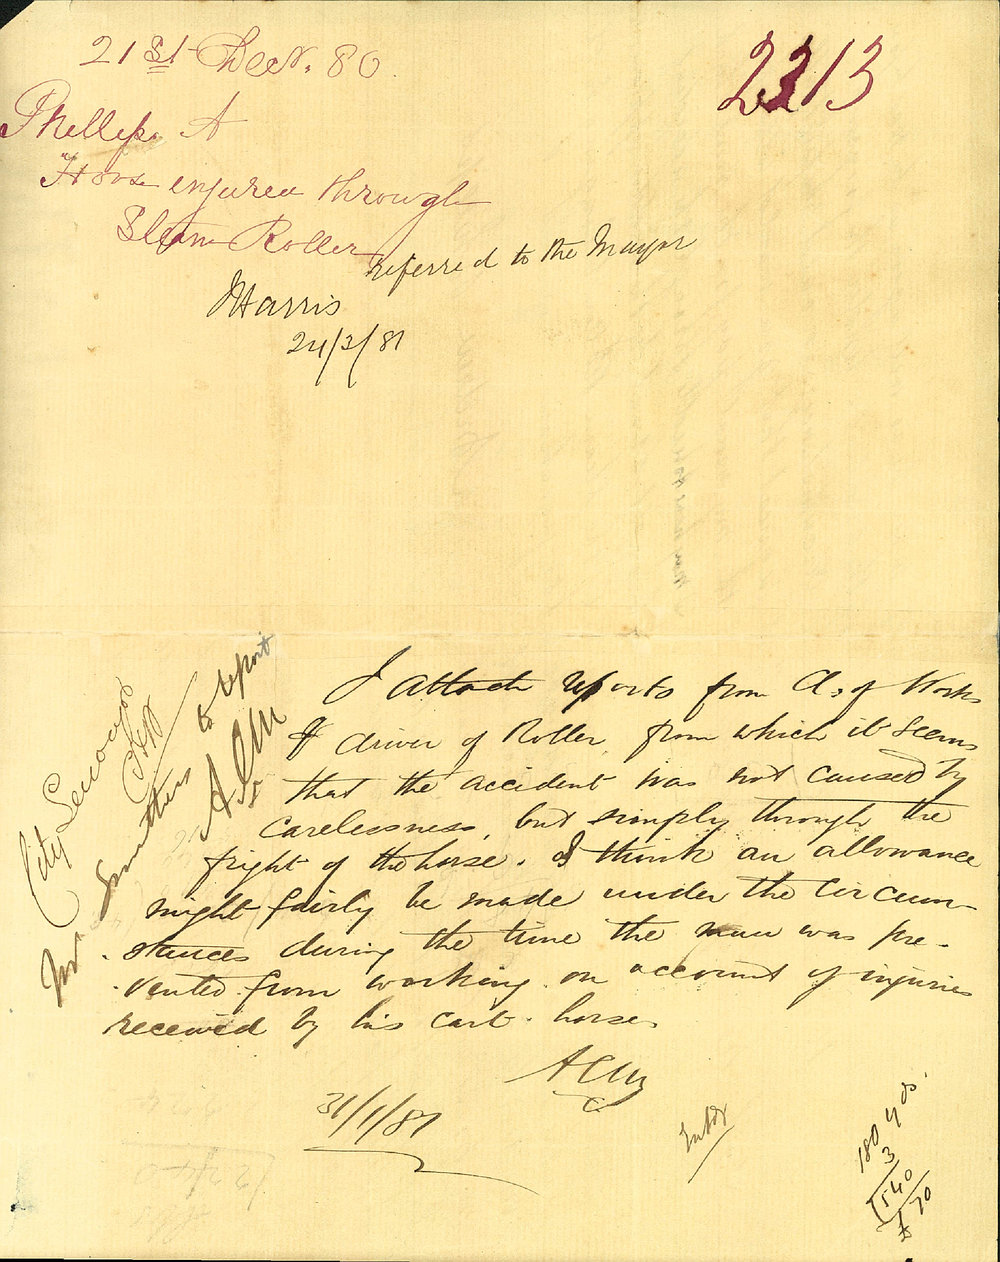 21st Decr. 80.
2213
Phillips A
Horse injured through
Steam Roller
referred to the Mayor
JHarris
24/3/81
City Surveyor
Mr Smithers to report
I attach reports from C. of Works
& driver of Roller, from which it seems
that the accident was not caused by
carelessness, but simply through the
fright of the horse. I think an allowance
might fairly be made under the circum-
-stances during the time the man was pre-
-vented from working on account of injuries
received by his cart-horse.
31/1/81
180 yds.
3
540
£